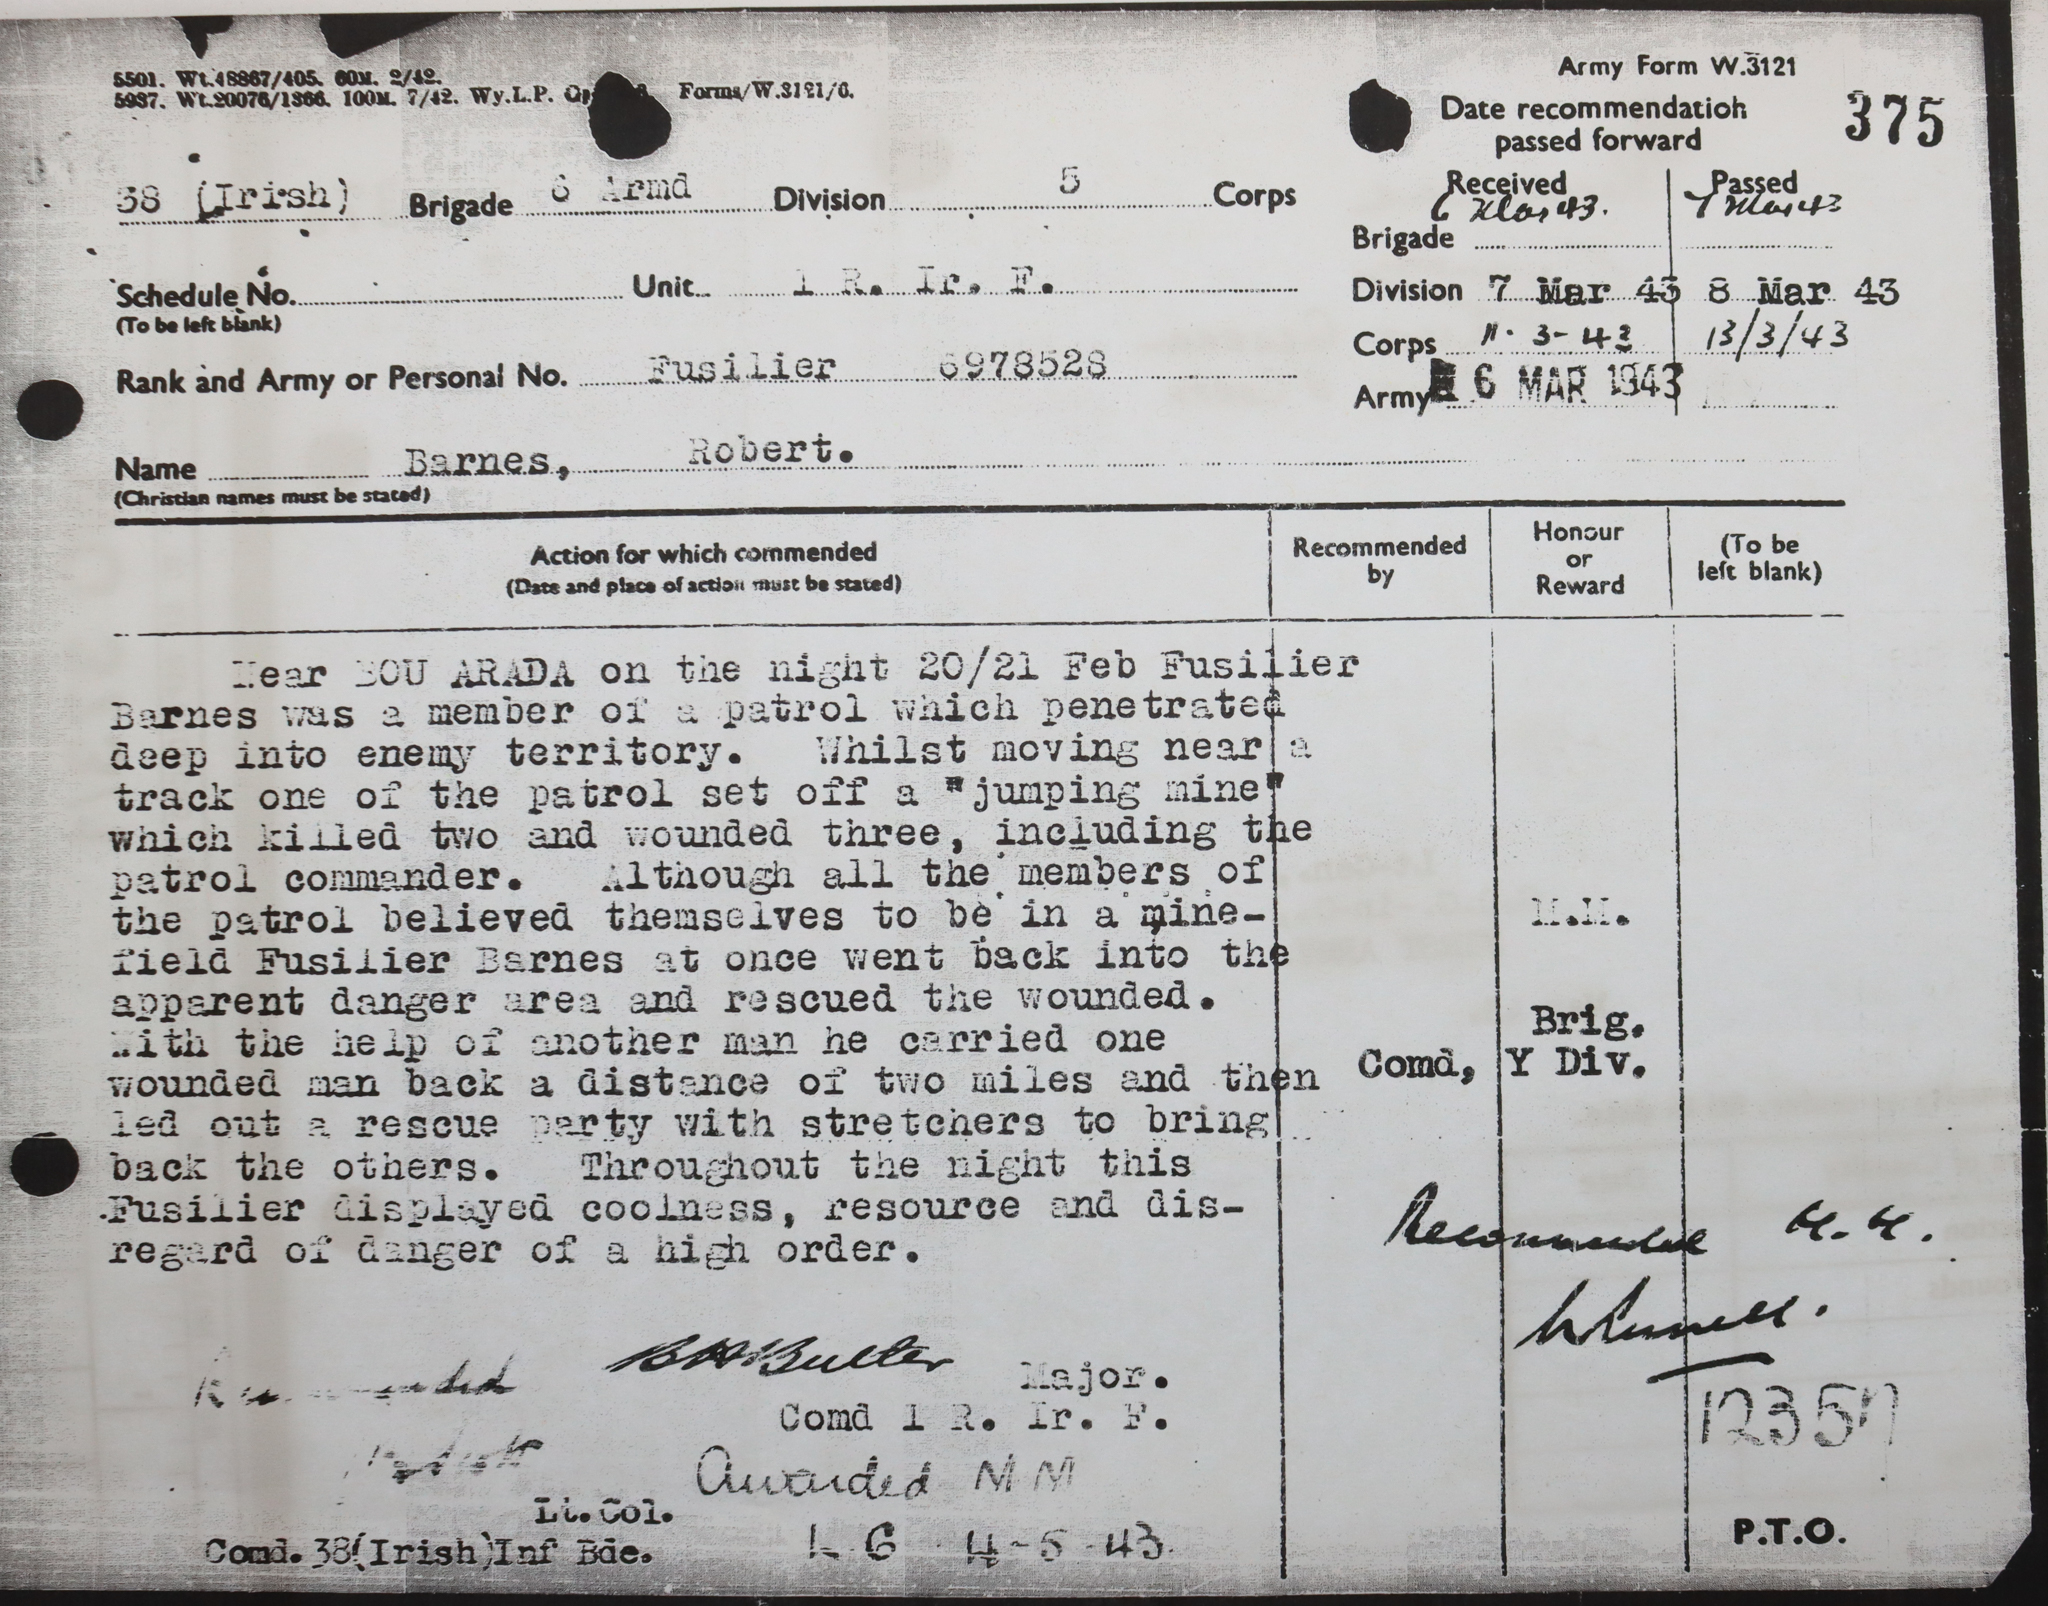 5501. Wt.48867/405. 60M. 2/42.
5987. Wt.20076/1366. 100M. 7/42. Wy.L.P. Forms/W.3121/6.
Army Form W.3121
Date recommendation
passed forward
375
38 (Irish) Brigade 6 Armd Division 5 Corps
Received Passed
Brigade 6 Mar 43. 7 Mar 43
Schedule No. Unit 1 R. Ir. F.
(To be left blank)
Division 7 Mar 43 8 Mar 43
Corps 11-3-43 13/3/43
Rank and Army or Personal No. Fusilier 6978528
Army 16 MAR 1943
Name Barnes, Robert.
(Christian names must be stated)
Action for which commended
(Date and place of action must be stated)
Recommended
by
Honour
or
Reward
(To be
left blank)
Near BOU ARADA on the night 20/21 Feb Fusilier
Barnes was a member of a patrol which penetrated
deep into enemy territory. Whilst moving near a
track one of the patrol set off a "jumping mine"
which killed two and wounded three, including the
patrol commander. Although all the members of
the patrol believed themselves to be in a mine-
field Fusilier Barnes at once went back into the
apparent danger area and rescued the wounded.
With the help of another man he carried one
wounded man back a distance of two miles and then
led out a rescue party with stretchers to bring
back the others. Throughout the night this
Fusilier displayed coolness, resource and dis-
regard of danger of a high order.
M.M.
Brig.
Comd, Y Div.
Recommended M.M.
Recommended
B H Butler Major.
Comd 1 R. Ir. F.
12357
Awarded MM
Lt.Col.
Comd. 38(Irish)Inf Bde.
L G 4-5-43
P.T.O.